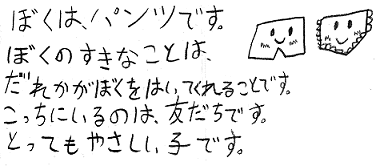 ぼくは、パンツです。
ぼくのすきなことは、
だれかがぼくをはいてくれることです。
こっちにいるのは、友だちです。
とってもやさしい子です。